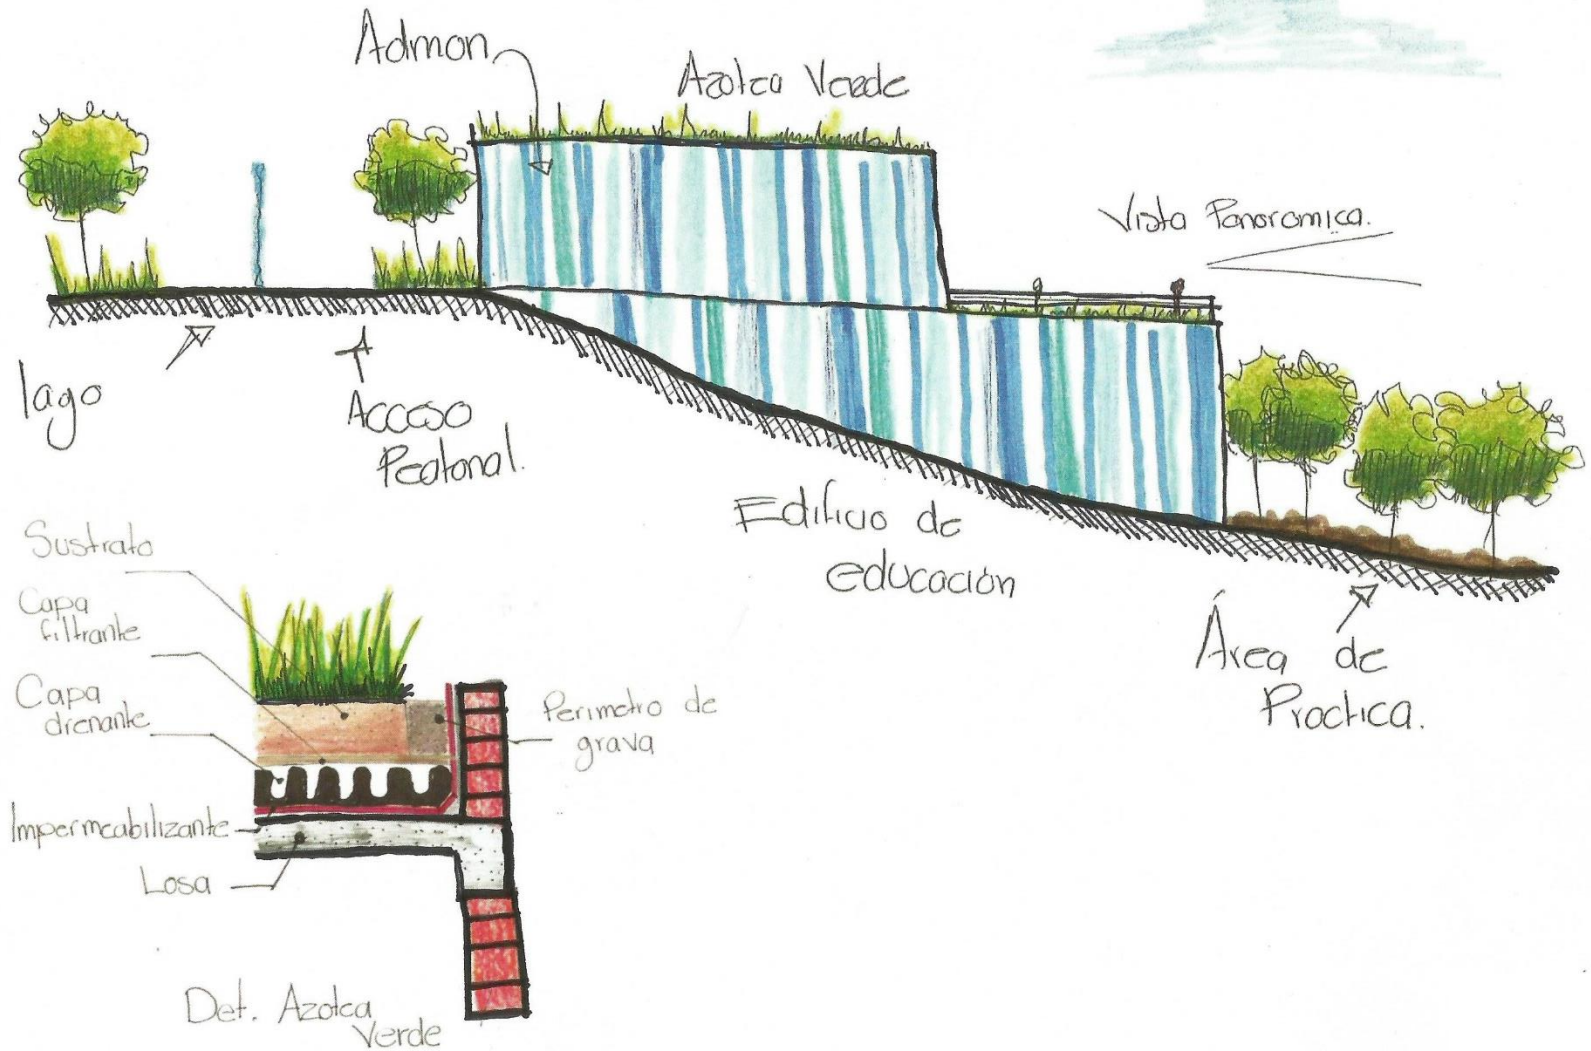 Admon
Azotea Verde
Vista Panoramica.
lago
Acceso
Peatonal.
Edificio de
educación
Área de
Practica.
Sustrato
Capa
filtrante
Capa
drenante
Impermeabilizante
Losa
Perimetro de
grava
Det. Azotea
Verde